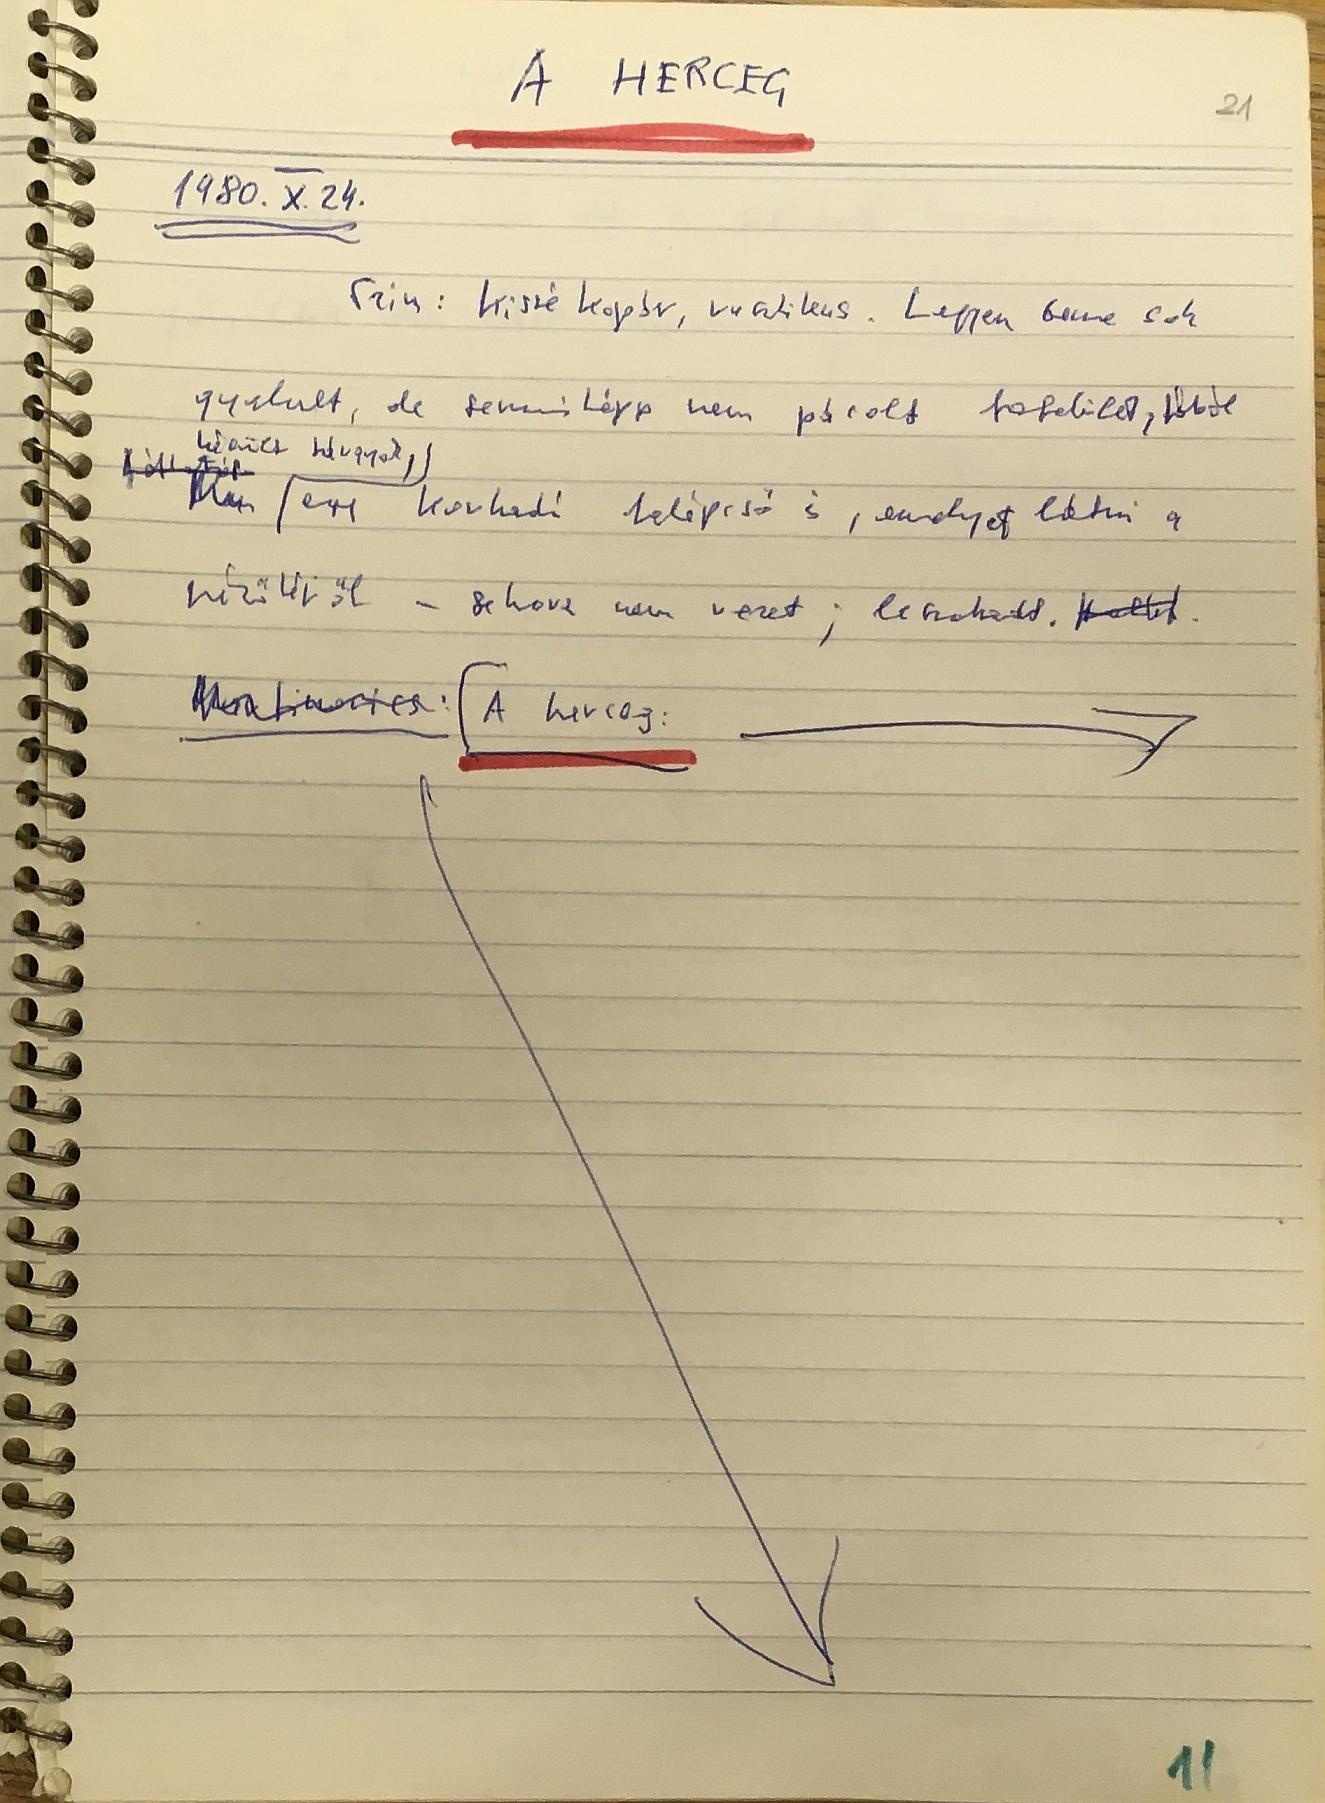 A HERCEG
21
1980. X. 24.
Szín: kissé kopár, rusztikus. Legyen benne sok
gyalult, de semmiképp nem pácolt fafelület,
egy korhadó falépcső is, amelyet látni a
nézőtérről – sehova nem vezet; leszakadt.
A herceg:
11